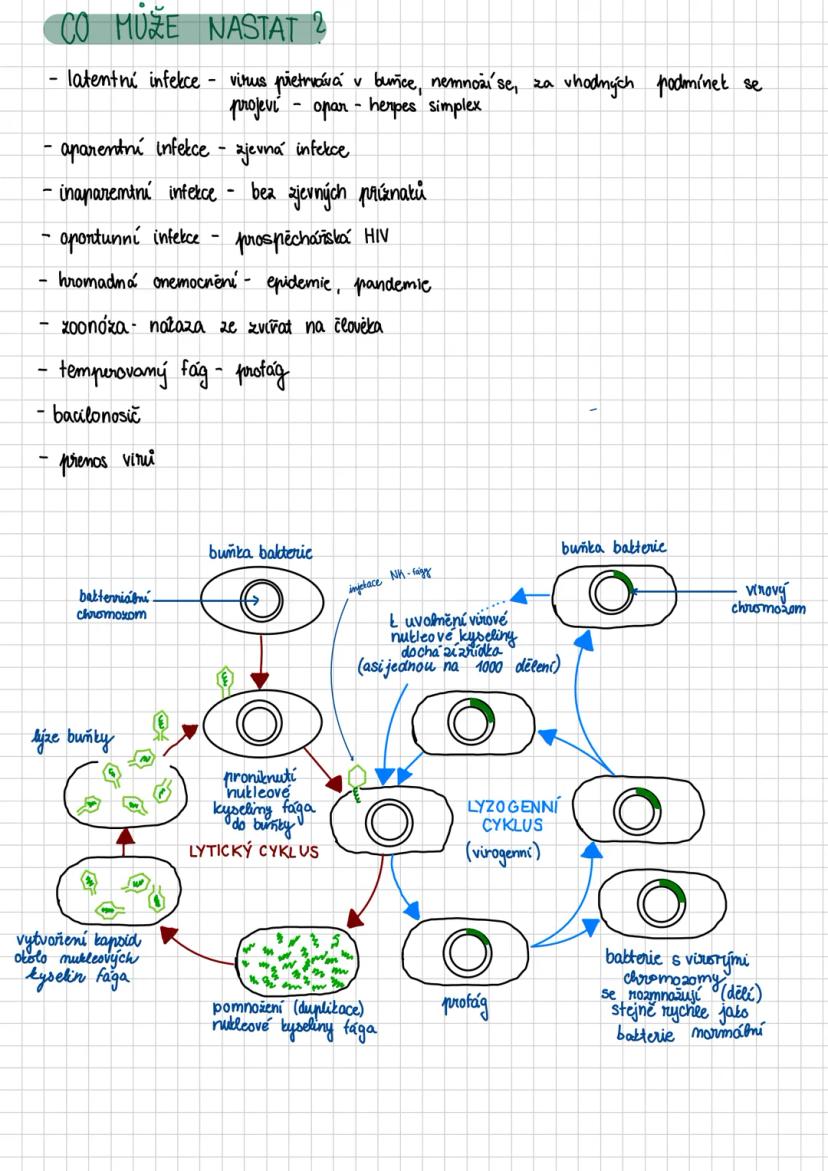 CO MŮŽE NASTAT?
- latentní infekce - virus přetrvává v buňce, nemnoží se, za vhodných podmínek se
projeví - opar - herpes simplex
- aparentní infekce - zjevná infekce
- inaparentní infekce - bez zjevných příznaků
- oportunní infekce - prospěchářská HIV
- hromadná onemocnění - epidemie, pandemie
- zoonóza - nákaza ze zvířat na člověka
- temperovaný fág - profág
- bacilonosič
- přenos virů
buňka bakterie
bakteriální
chromozom
injekce NK - fágy
buňka bakterie
virový
chromozom
k uvolnění virové
nukleové kyseliny
dochází zřídka
(asi jednou na 1000 dělení)
lýze buňky
proniknutí
nukleové
kyseliny fága
do buňky
LYTICKÝ CYKLUS
LYZOGENNÍ
CYKLUS
(virogenní)
vytvoření kapsid
okolo nukleových
kyselin fága
pomnožení (duplikace)
nukleové kyseliny fága
profág
bakterie s virovými
chromozomy
se rozmnožují (dělí)
stejně rychle jako
bakterie normální